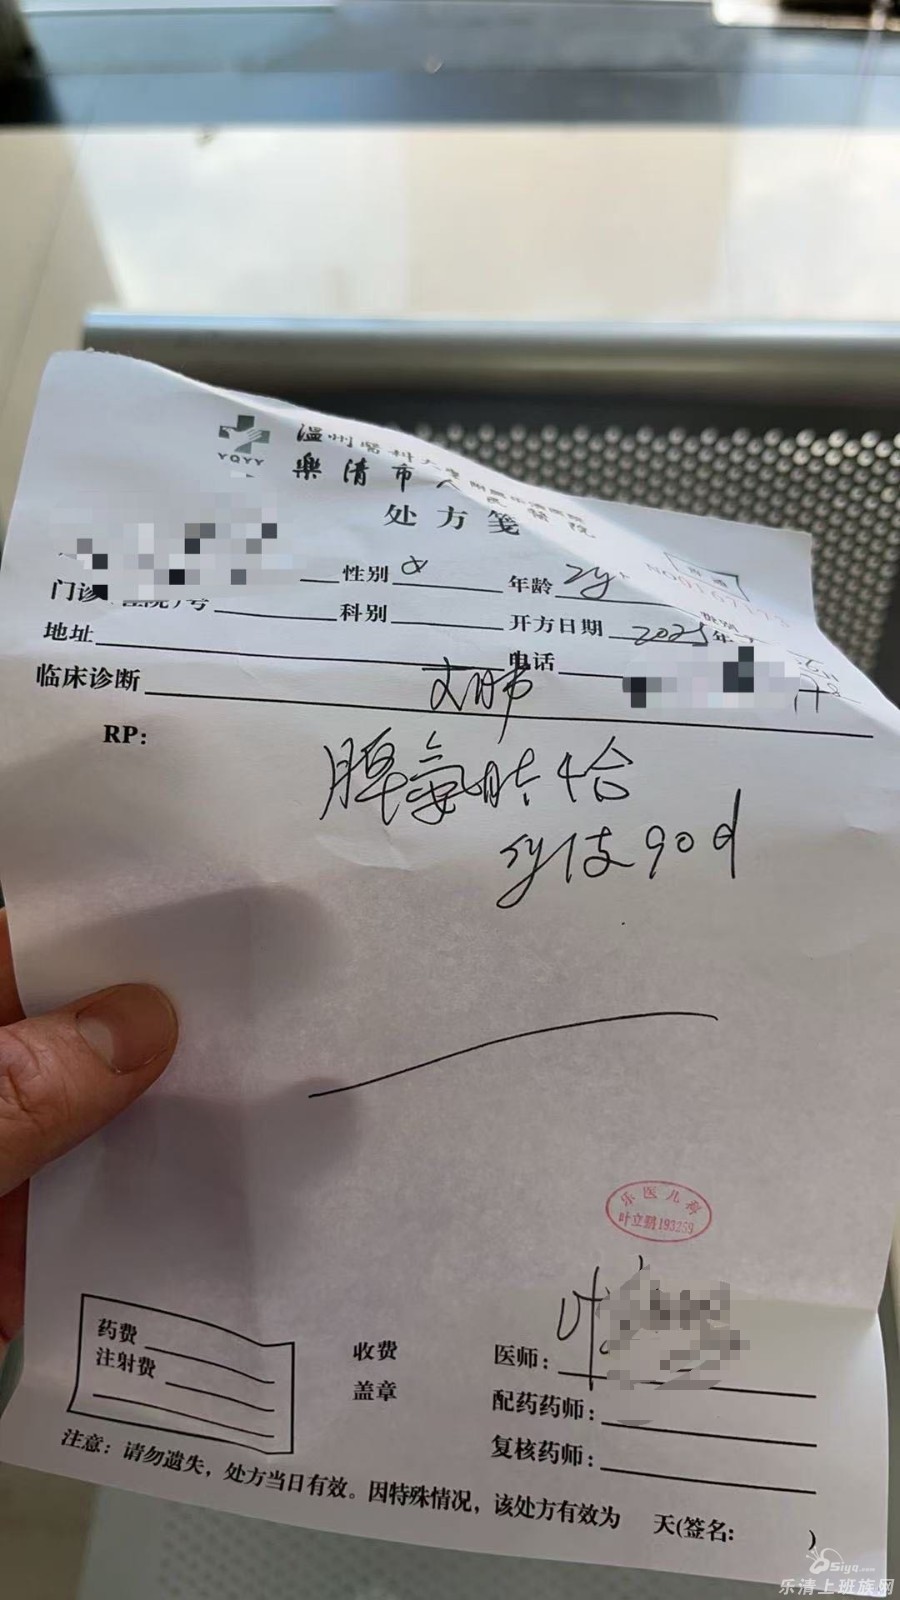 YQYY
温州医科大学附属乐清医院
樂清市人民醫院
处方笺
普通
性别 女 年龄 2y+
门诊 号 科别 开方日期 2025年
地址 电话
临床诊断
RP:
脾氨肽 4合
1支 90d
乐医儿科
叶立鹏193259
药费
注射费
收费
盖章
医师: 叶
配药药师:
复核药师:
注意：请勿遗失，处方当日有效。因特殊情况，该处方有效为 天(签名: )
乐清上班族网